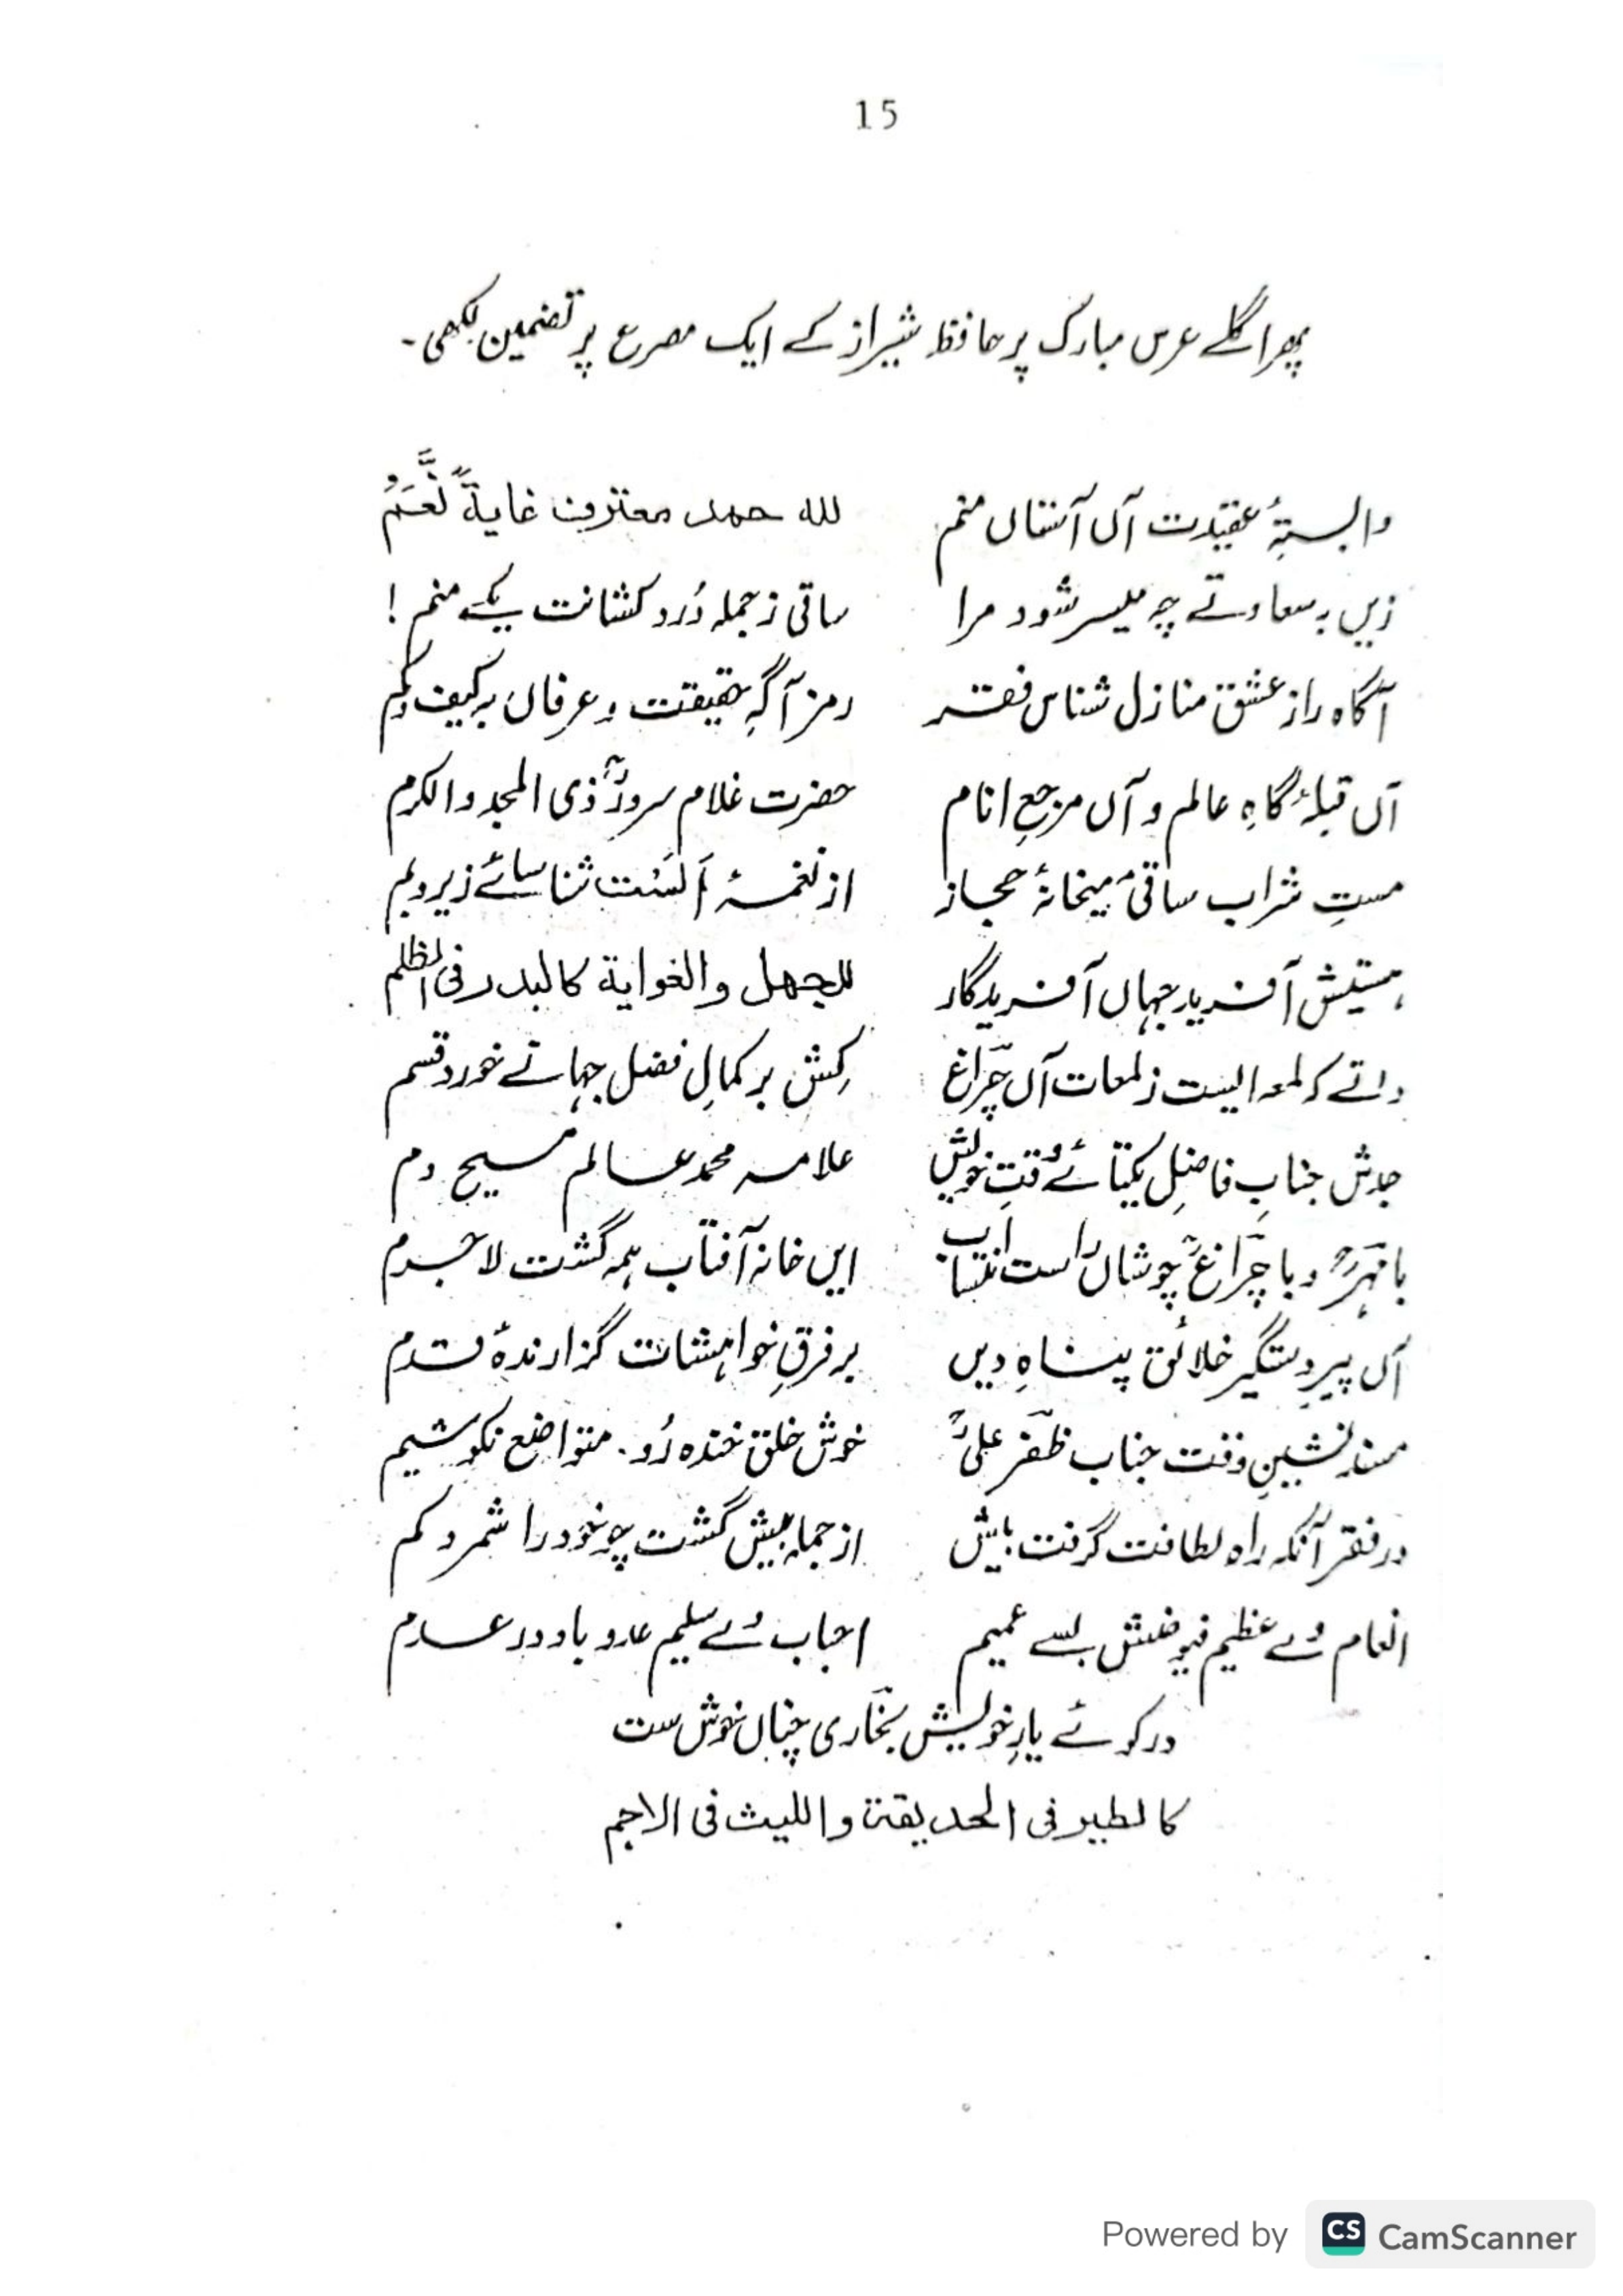 15
پھر اگلے عرس مبارک پر حافظ شیراز کے ایک مصرع پر تضمین لکھی۔
وابستۂ عقیدت آں آستاں منم لله حمد معترف غایةً
زیں بہ سعادتے چہ میسر شود مرا ساقی ز جملہ دُرد کشانت یکے منم!
آگاہ راز عشق منازل شناس فقر رمز آگہِ حقیقت و عرفاں بہ کیف و کم
آں قبلۂ گاہِ عالم و آں مرجعِ انام حضرت غلام سرورؒ ذی المجد والکرم
مستِ شراب ساقیٔ میخانۂ حجاز از نغمۂ اَلَسْت شناسائے زیر و بم
ہستیش آفرید جہاں آفریدگار للجهل والغوایة کالبدر فی الظلم
ذاتے کہ لمعہ ایست ز لمعات آں چَراغ کِش بر کمالِ فضل جہانے خورد قسم
جدش جنابِ فاضلِ یکتائے وقتِ خویش علامہ محمد عالم مسیح دم
با مہرؒ و با چَراغؒ چو شاں را ست انتساب ایں خانہ آفتاب ہمہ گشت لا جرم
آں پیرِ دستگیر خلائق پناہِ دیں بر فرقِ خواہشات گزارندۂ قدم
مسند نشینِ وقت جناب ظفر علیؒ خوش خلق خندہ رُو۔ متواضع نکو شیم
در فقر آنکہ راہ لطافت گرفت پیش از جملہ بیش گشت چو خود را شمرد کم
انعام وے عظیم فیوضش بسے عمیم احباب وے سلیم عدو باد در عدم
در کوئے یارِ خویش بخاری چناں خوش ست
کالطیر فی الحدیقة واللیث فی الاجم
Powered by CS CamScanner